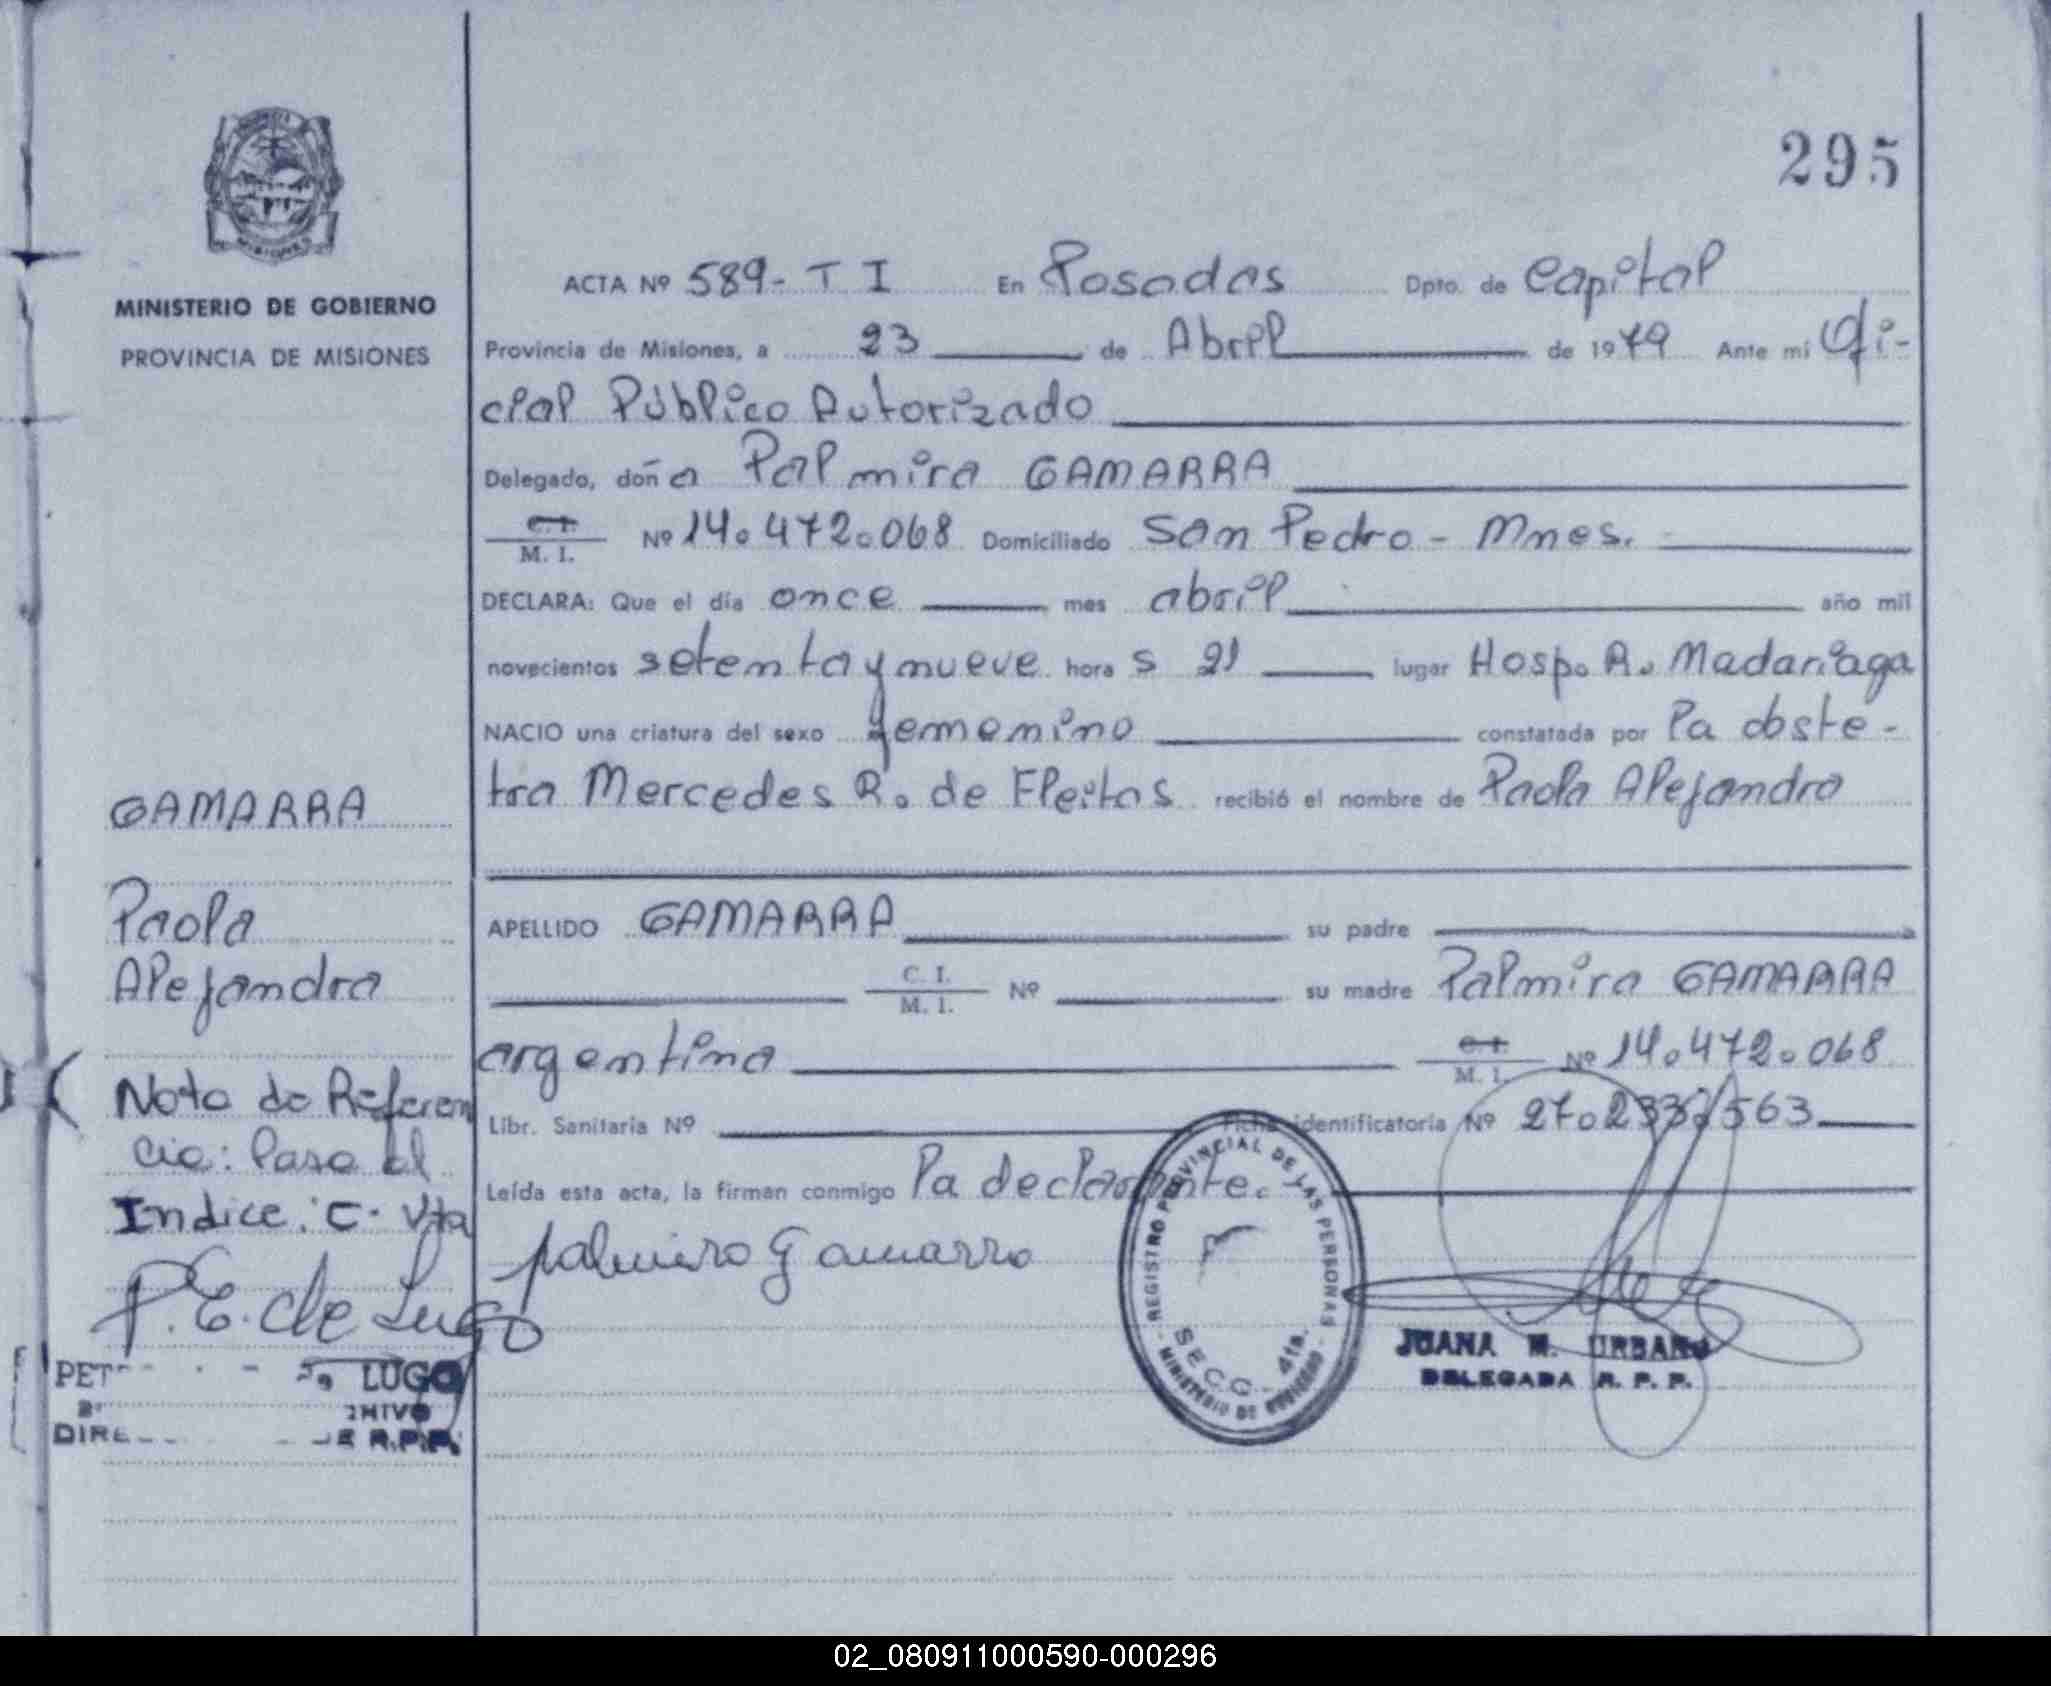 295
MINISTERIO DE GOBIERNO
PROVINCIA DE MISIONES
ACTA Nº 589- T I En Posadas Dpto. de Capital
Provincia de Misiones, a 23 de Abril de 1979 Ante mí Ofi-
cial Público Autorizado
Delegado, doña Palmira GAMARRA
C. I. / M. I. Nº 14.472.068 Domiciliado San Pedro - Mnes.
DECLARA: Que el día once mes abril año mil
novecientos setenta y nueve horas 21 lugar Hosp. R. Madariaga
NACIO una criatura del sexo femenino constatada por la obste-
tra Mercedes R. de Fleitas recibió el nombre de Paola Alejandra
APELLIDO GAMARRA su padre
C. I. / M. I. Nº su madre Palmira GAMARRA
argentina C. I. / M. I. Nº 14.472.068
Libr. Sanitaria Nº Ficha identificatoria Nº 27.233.563
Leída esta acta, la firman conmigo la declarante.
Palmira Gamarra
GAMARRA
Paola
Alejandra
Nota de Referen
cia: Pasa al
Indice: C. Vta
P. E. de Lugo
LUGO
R.P.P.
REGISTRO PROVINCIAL DE LAS PERSONAS
SECC. 4ta.
MINISTERIO DE GOBIERNO
JUANA M. URBANO
DELEGADA R. P. P.
02_080911000590-000296